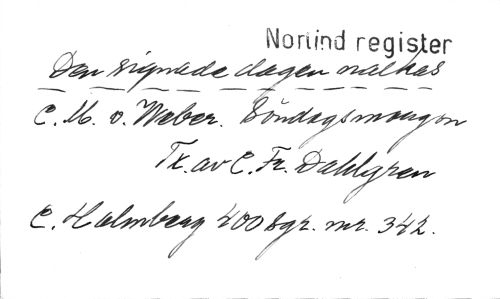 Norlind register
Den signade dagen nalkas
C. M. v. Weber. Söndagsmorgon
Tx. av C. Fr. Dahlgren
C. Holmberg 400 sgr. nr. 342.